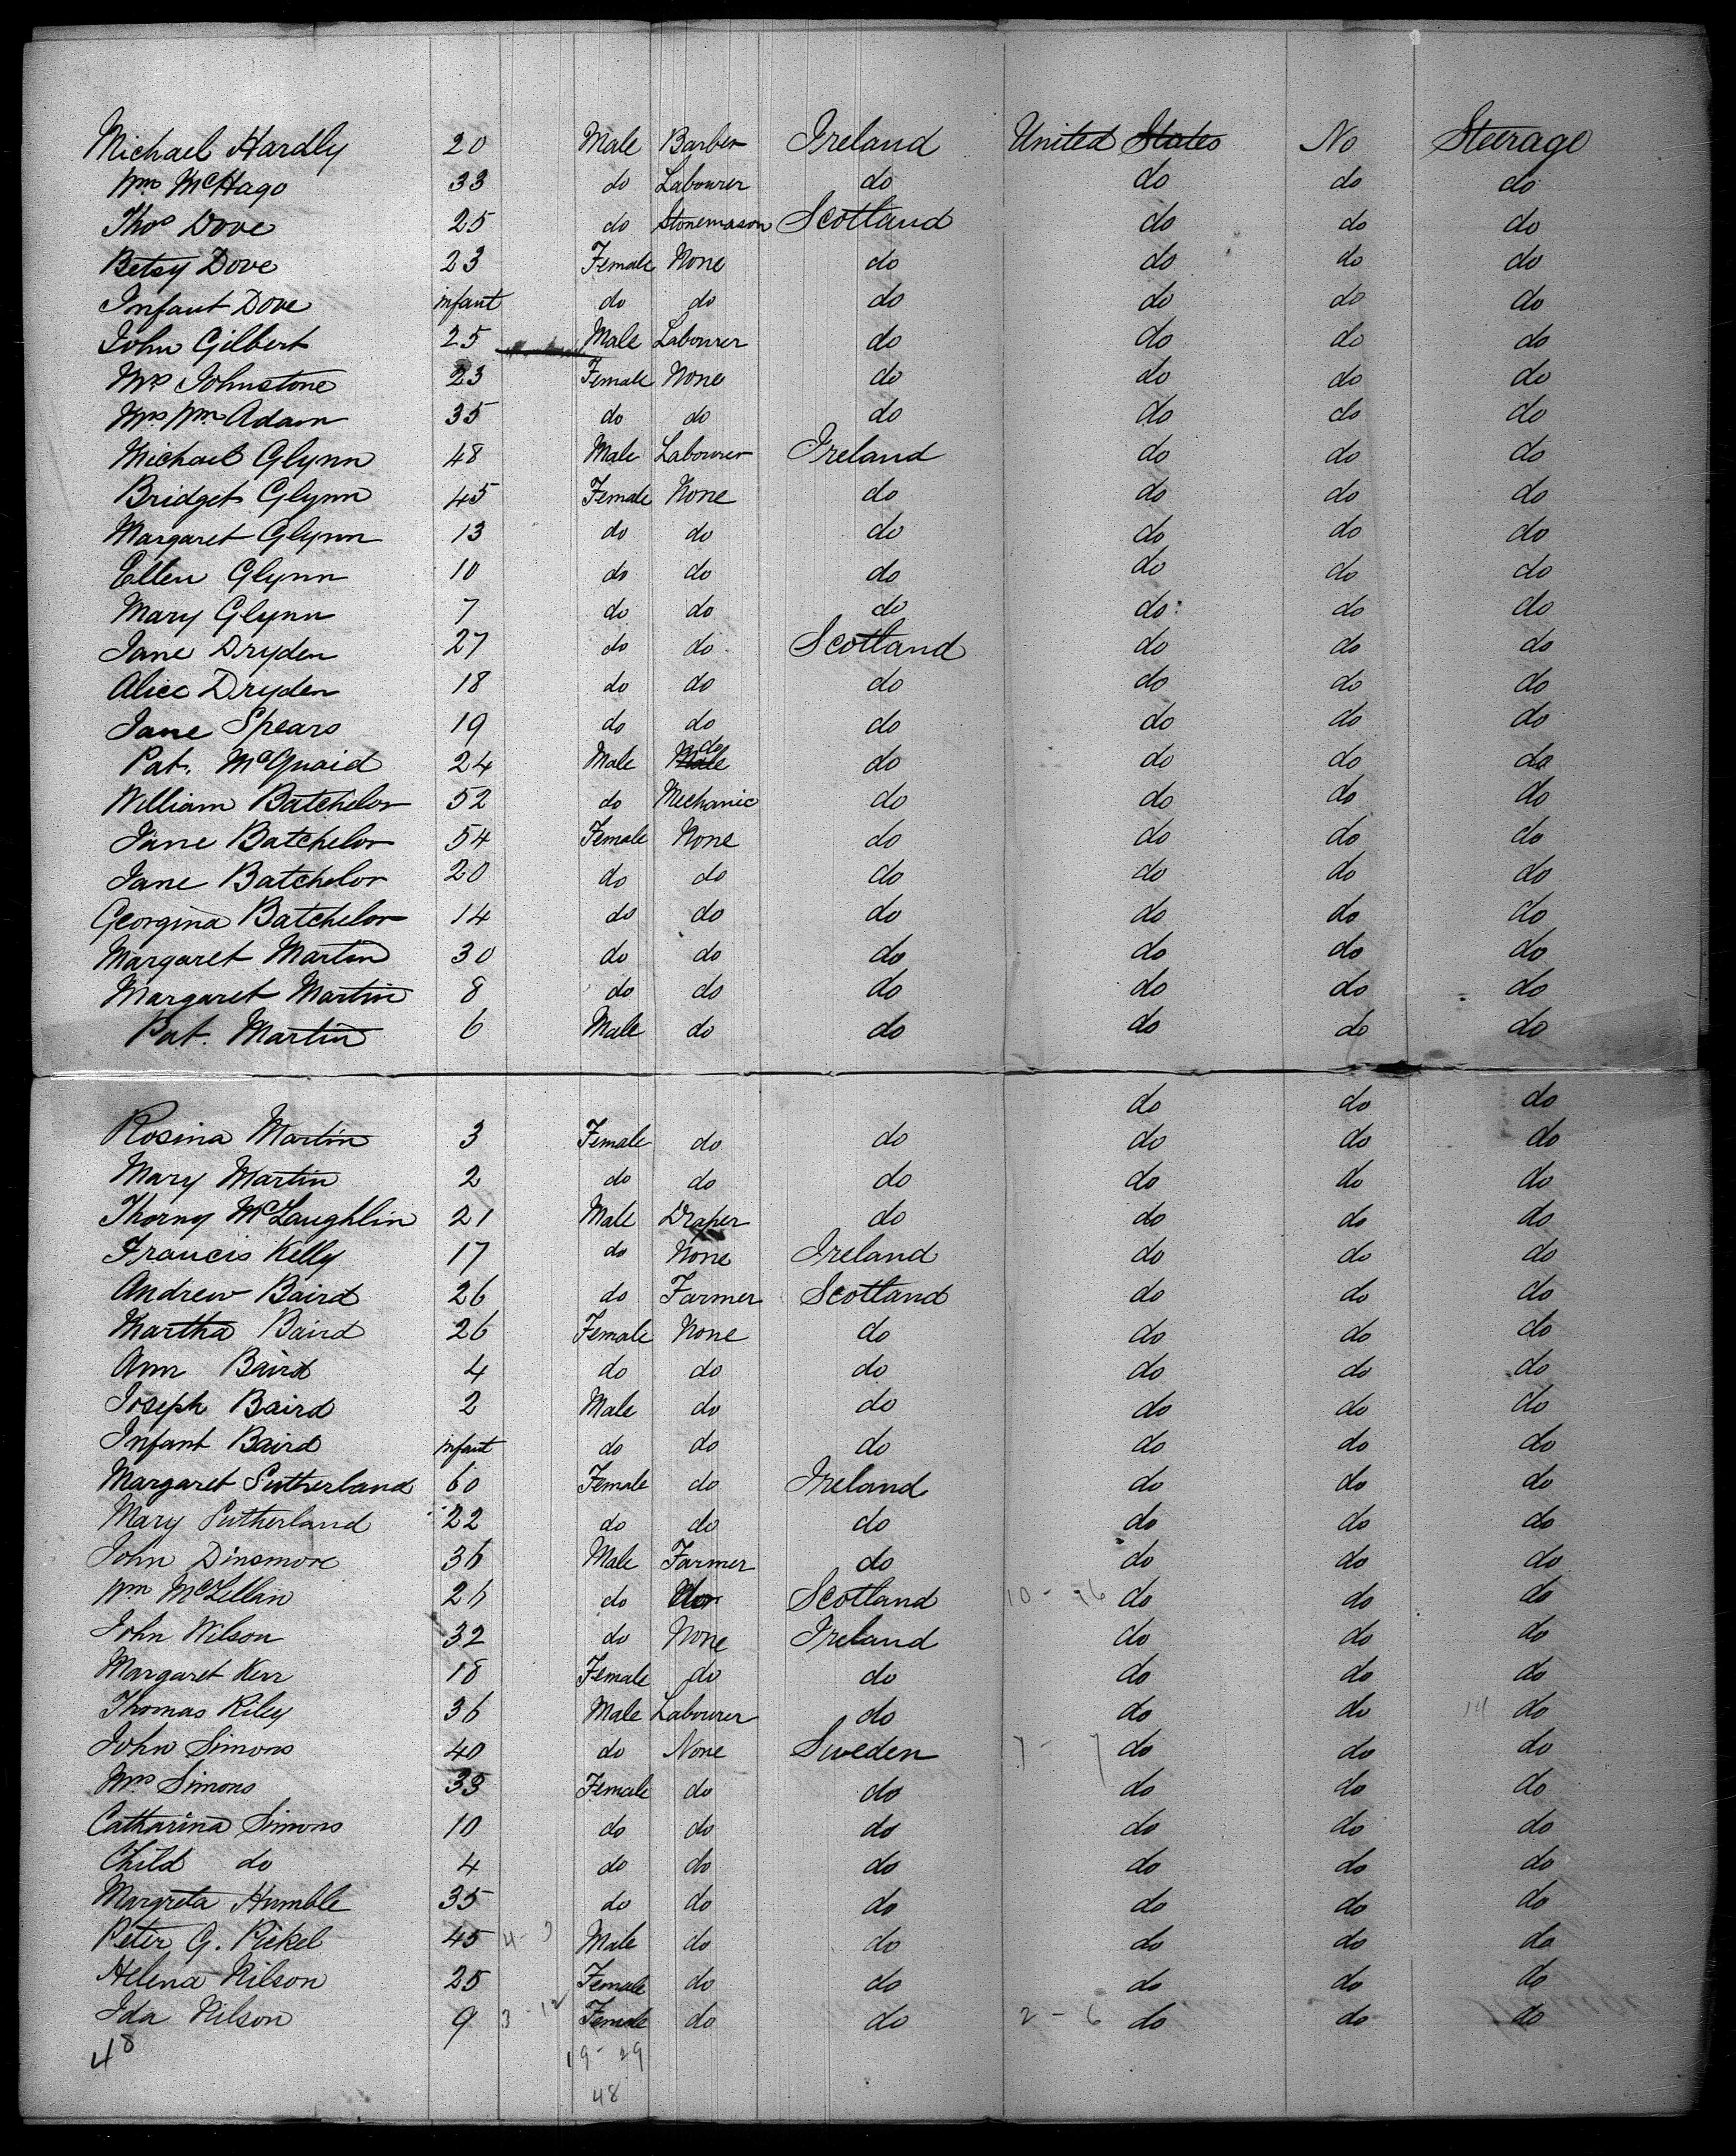 Michael Hardly 20 Male Barber Ireland United States No Steerage
Wm. McHago 33 do Labourer do do do do
Thos Dove 25 do Stonemason Scotland do do do
Betsy Dove 23 Female None do do do do
Infant Dove infant do do do do do do
John Gilbert 25 Male Labourer do do do do
Mrs Johnstone 23 Female None do do do do
Mrs Wm. Adam 35 do do do do do do
Michael Glynn 48 Male Labourer Ireland do do do
Bridget Glynn 45 Female None do do do do
Margaret Glynn 13 do do do do do do
Ellen Glynn 10 do do do do do do
Mary Glynn 7 do do do do do do
Jane Dryden 27 do do Scotland do do do
Alice Dryden 18 do do do do do do
Jane Spears 19 do do do do do do
Pat. McQuaid 24 Male do do do do do
William Batchelor 52 do Mechanic do do do do
Jane Batchelor 54 Female None do do do do
Jane Batchelor 20 do do do do do do
Georgina Batchelor 14 do do do do do do
Margaret Martin 30 do do do do do do
Margaret Martin 8 do do do do do do
Pat. Martin 6 Male do do do do do
do do do
Rosina Martin 3 Female do do do do do
Mary Martin 2 do do do do do do
Thorny McLaughlin 21 Male Draper do do do do
Francis Kelly 17 do None Ireland do do do
Andrew Baird 26 do Farmer Scotland do do do
Martha Baird 26 Female None do do do do
Ann Baird 4 do do do do do do
Joseph Baird 2 Male do do do do do
Infant Baird infant do do do do do do
Margaret Sutherland 60 Female do Ireland do do do
Mary Sutherland 22 do do do do do do
John Dinsmore 36 Male Farmer do do do do
Wm McLellan 26 do Scotland 10 - 16 do do do
John Wilson 32 do None Ireland do do do
Margaret Kerr 18 Female do do do do do
Thomas Riley 36 Male Labourer do do do 14 do
John Simons 40 do None Sweden 7 - 7 do do do
Mrs Simons 33 Female do do do do do
Catharina Simons 10 do do do do do do
Child do 4 do do do do do do
Margreta Humble 35 do do do do do do
Peter G. Pickel 45 4 - 3 Male do do do do do
Helena Nilson 25 Female do do do do do
Ida Nilson 9 3 - 12 Female do do 2 - 6 do do do
48 19 - 29
48